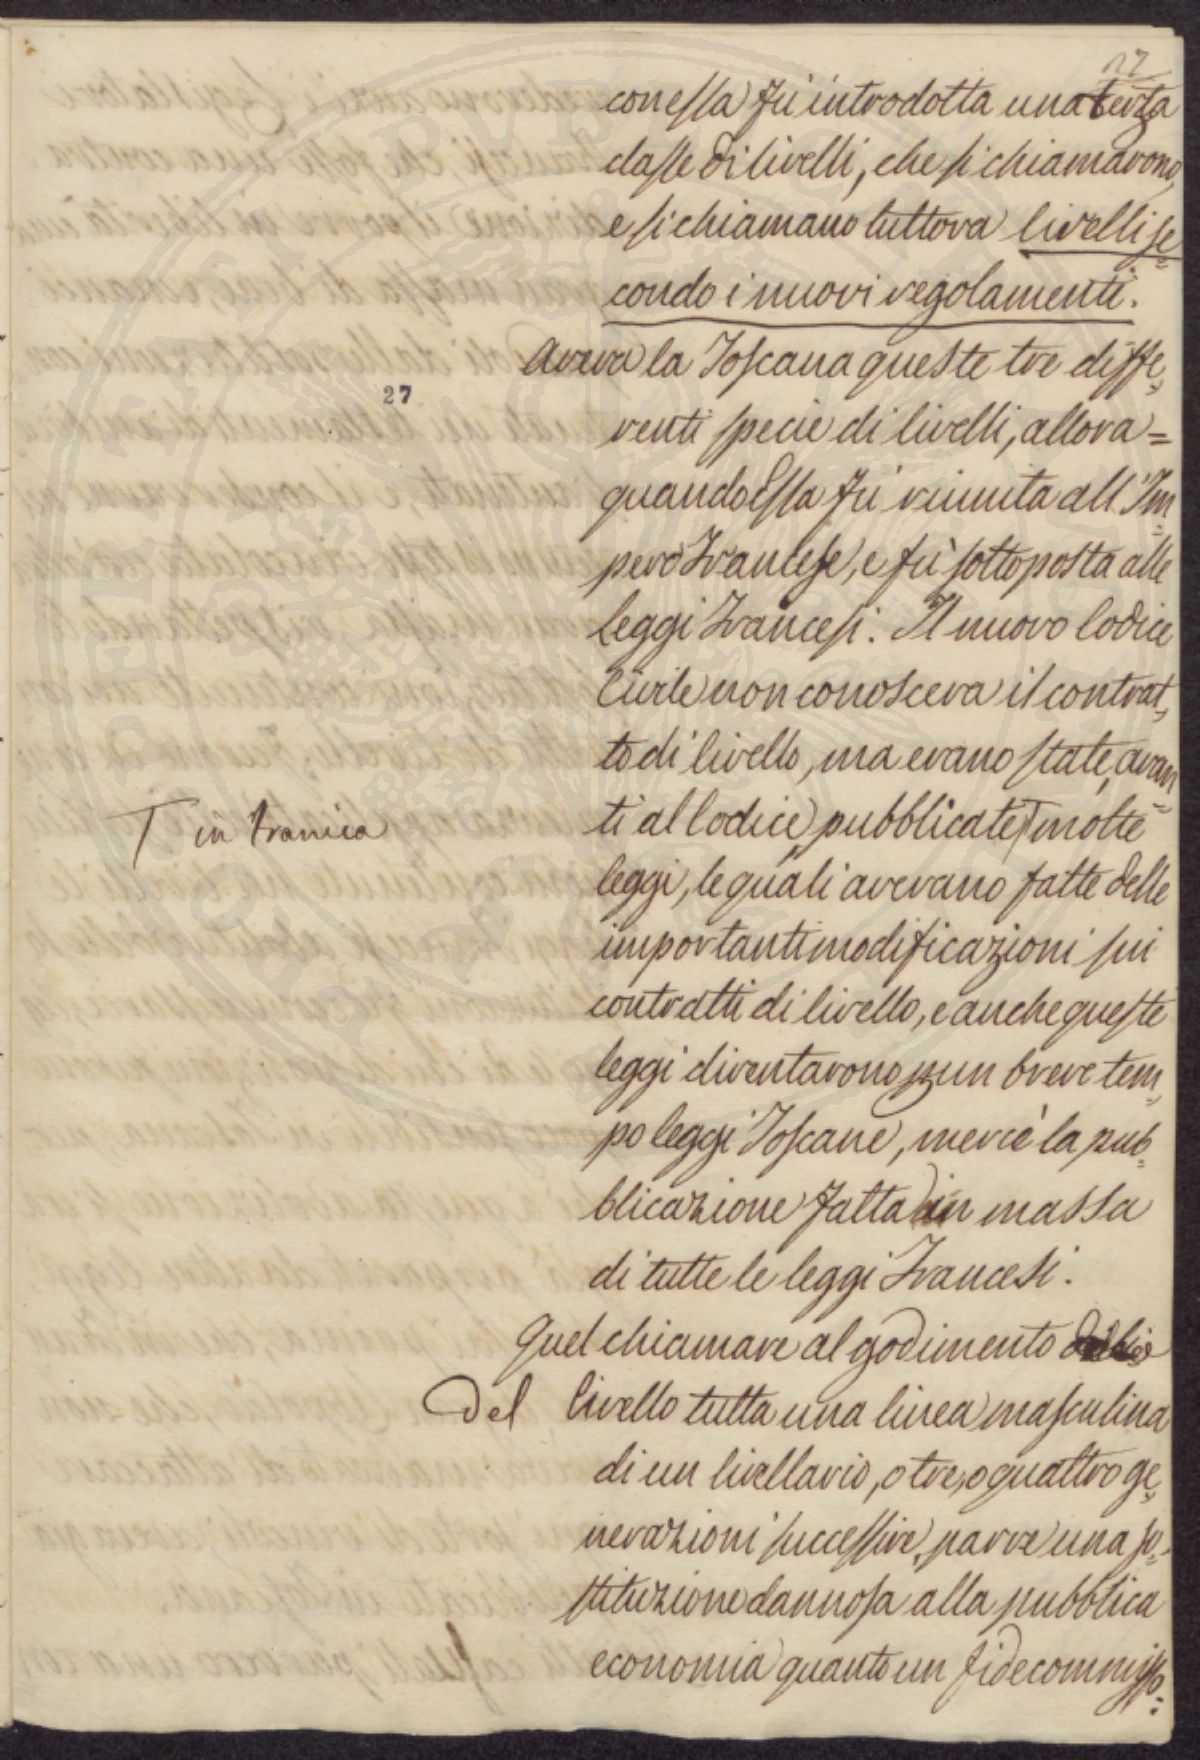 27
con essa fù introdotta una terza
classe di livelli, che si chiamarono,
e si chiamano tuttora livelli se=
condo i nuovi regolamenti.
Aveva la Toscana queste tre diffe=
27
renti specie di livelli, allora=
quando Essa fù riunita all'Im=
pero Francese, e fù sottoposta alle
leggi Francesi. Il nuovo Codice
Civile non conosceva il contrat=
to di livello, ma erano state, avan=
ti al Codice, pubblicate T molte
T in Francia
leggi, le quali avevano fatte delle
importanti modificazioni sui
contratti di livello, e anche queste
leggi diventarono p un breve tem=
po leggi Toscane, mercè la pub=
blicazione fatta in massa
di tutte le leggi Francesi.
Quel chiamare al godimento
Del livello tutta una linea masculina
di un livellario, o tre, o quattro ge=
nerazioni successive, parve una so=
stituzione dannosa alla pubblica
economia quanto un fidecommisso.